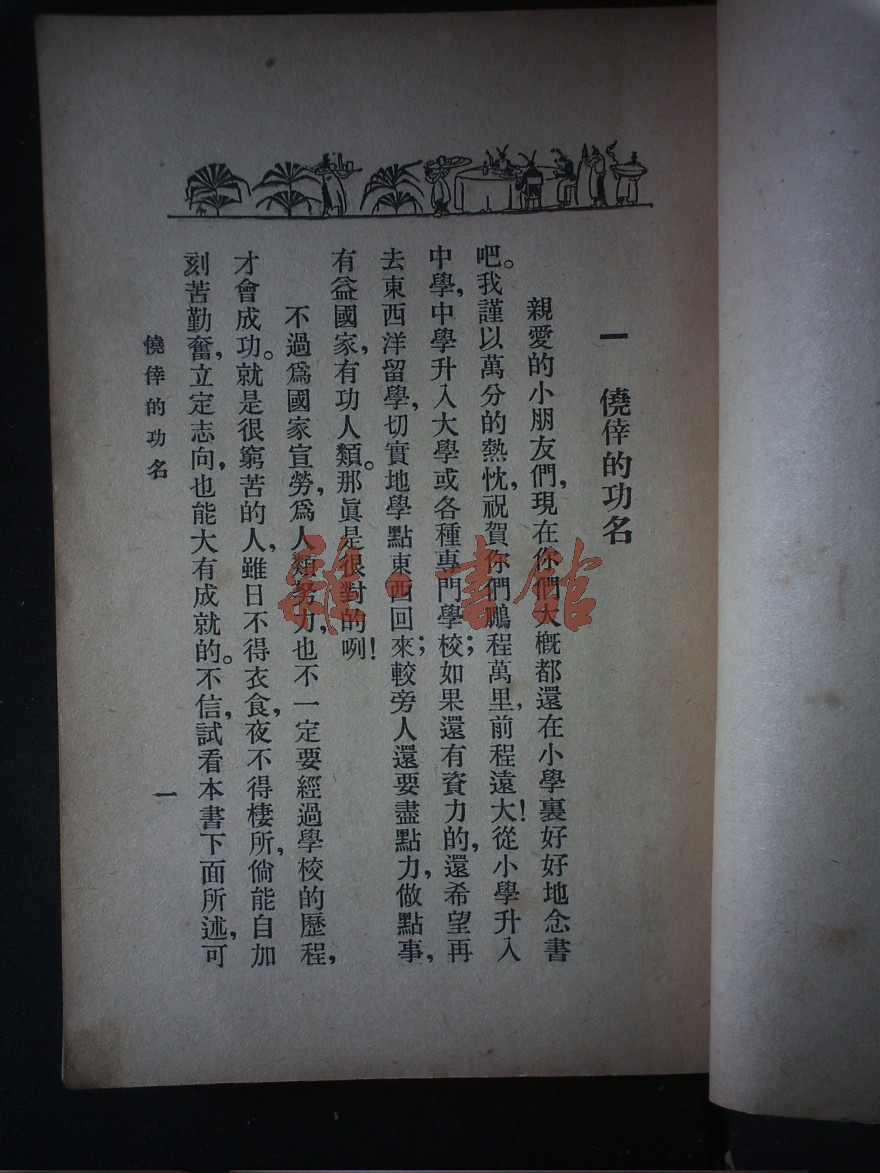 一　僥倖的功名
親愛的小朋友們，現在你們大概都還在小學裏好好地念書
吧。我謹以萬分的熱忱，祝賀你們鵬程萬里，前程遠大！從小學升入
中學，中學升入大學或各種專門學校；如果還有資力的，還希望再
去東西洋留學，切實地學點東西回來；較旁人還要盡點力，做點事，
有益國家，有功人類。那眞是很對的咧！
不過爲國家宣勞，爲人類努力，也不一定要經過學校的歷程，
才會成功。就是很窮苦的人，雖日不得衣食，夜不得棲所，倘能自加
刻苦勤奮，立定志向，也能大有成就的。不信，試看本書下面所述，可
僥倖的功名
一
雜·書館